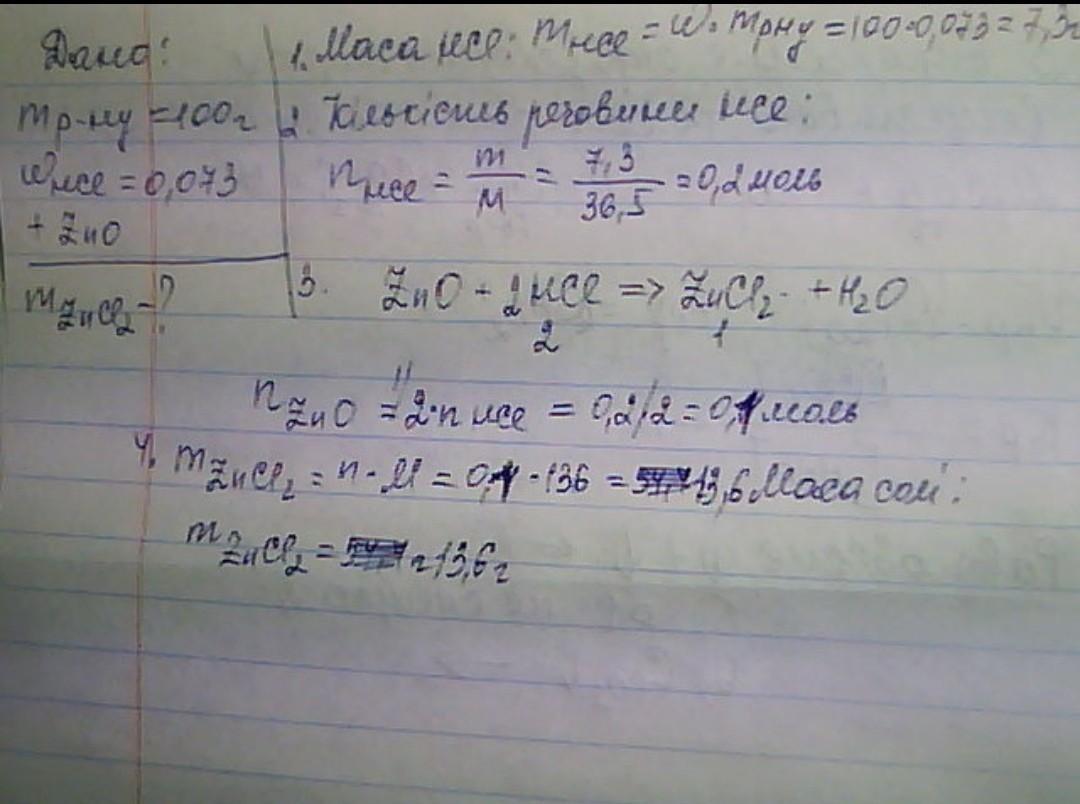 Дано:
m р-ну = 100 г
ω HCl = 0,073
+ ZnO
m ZnCl₂ - ?
1. Маса HCl: m HCl = ω · m р ну = 100 · 0,073 = 7,3г
2. Кількість речовини HCl:
n HCl = m/M = 7,3/36,5 = 0,2 моль
3. ZnO + 2HCl => ZnCl₂ + H₂O
2 1
n ZnO = 2·n HCl = 0,2/2 = 0,1 моль
4. m ZnCl₂ = n · M = 0,1 · 136 = 13,6 Маса солі:
m ZnCl₂ = г 13,6 г